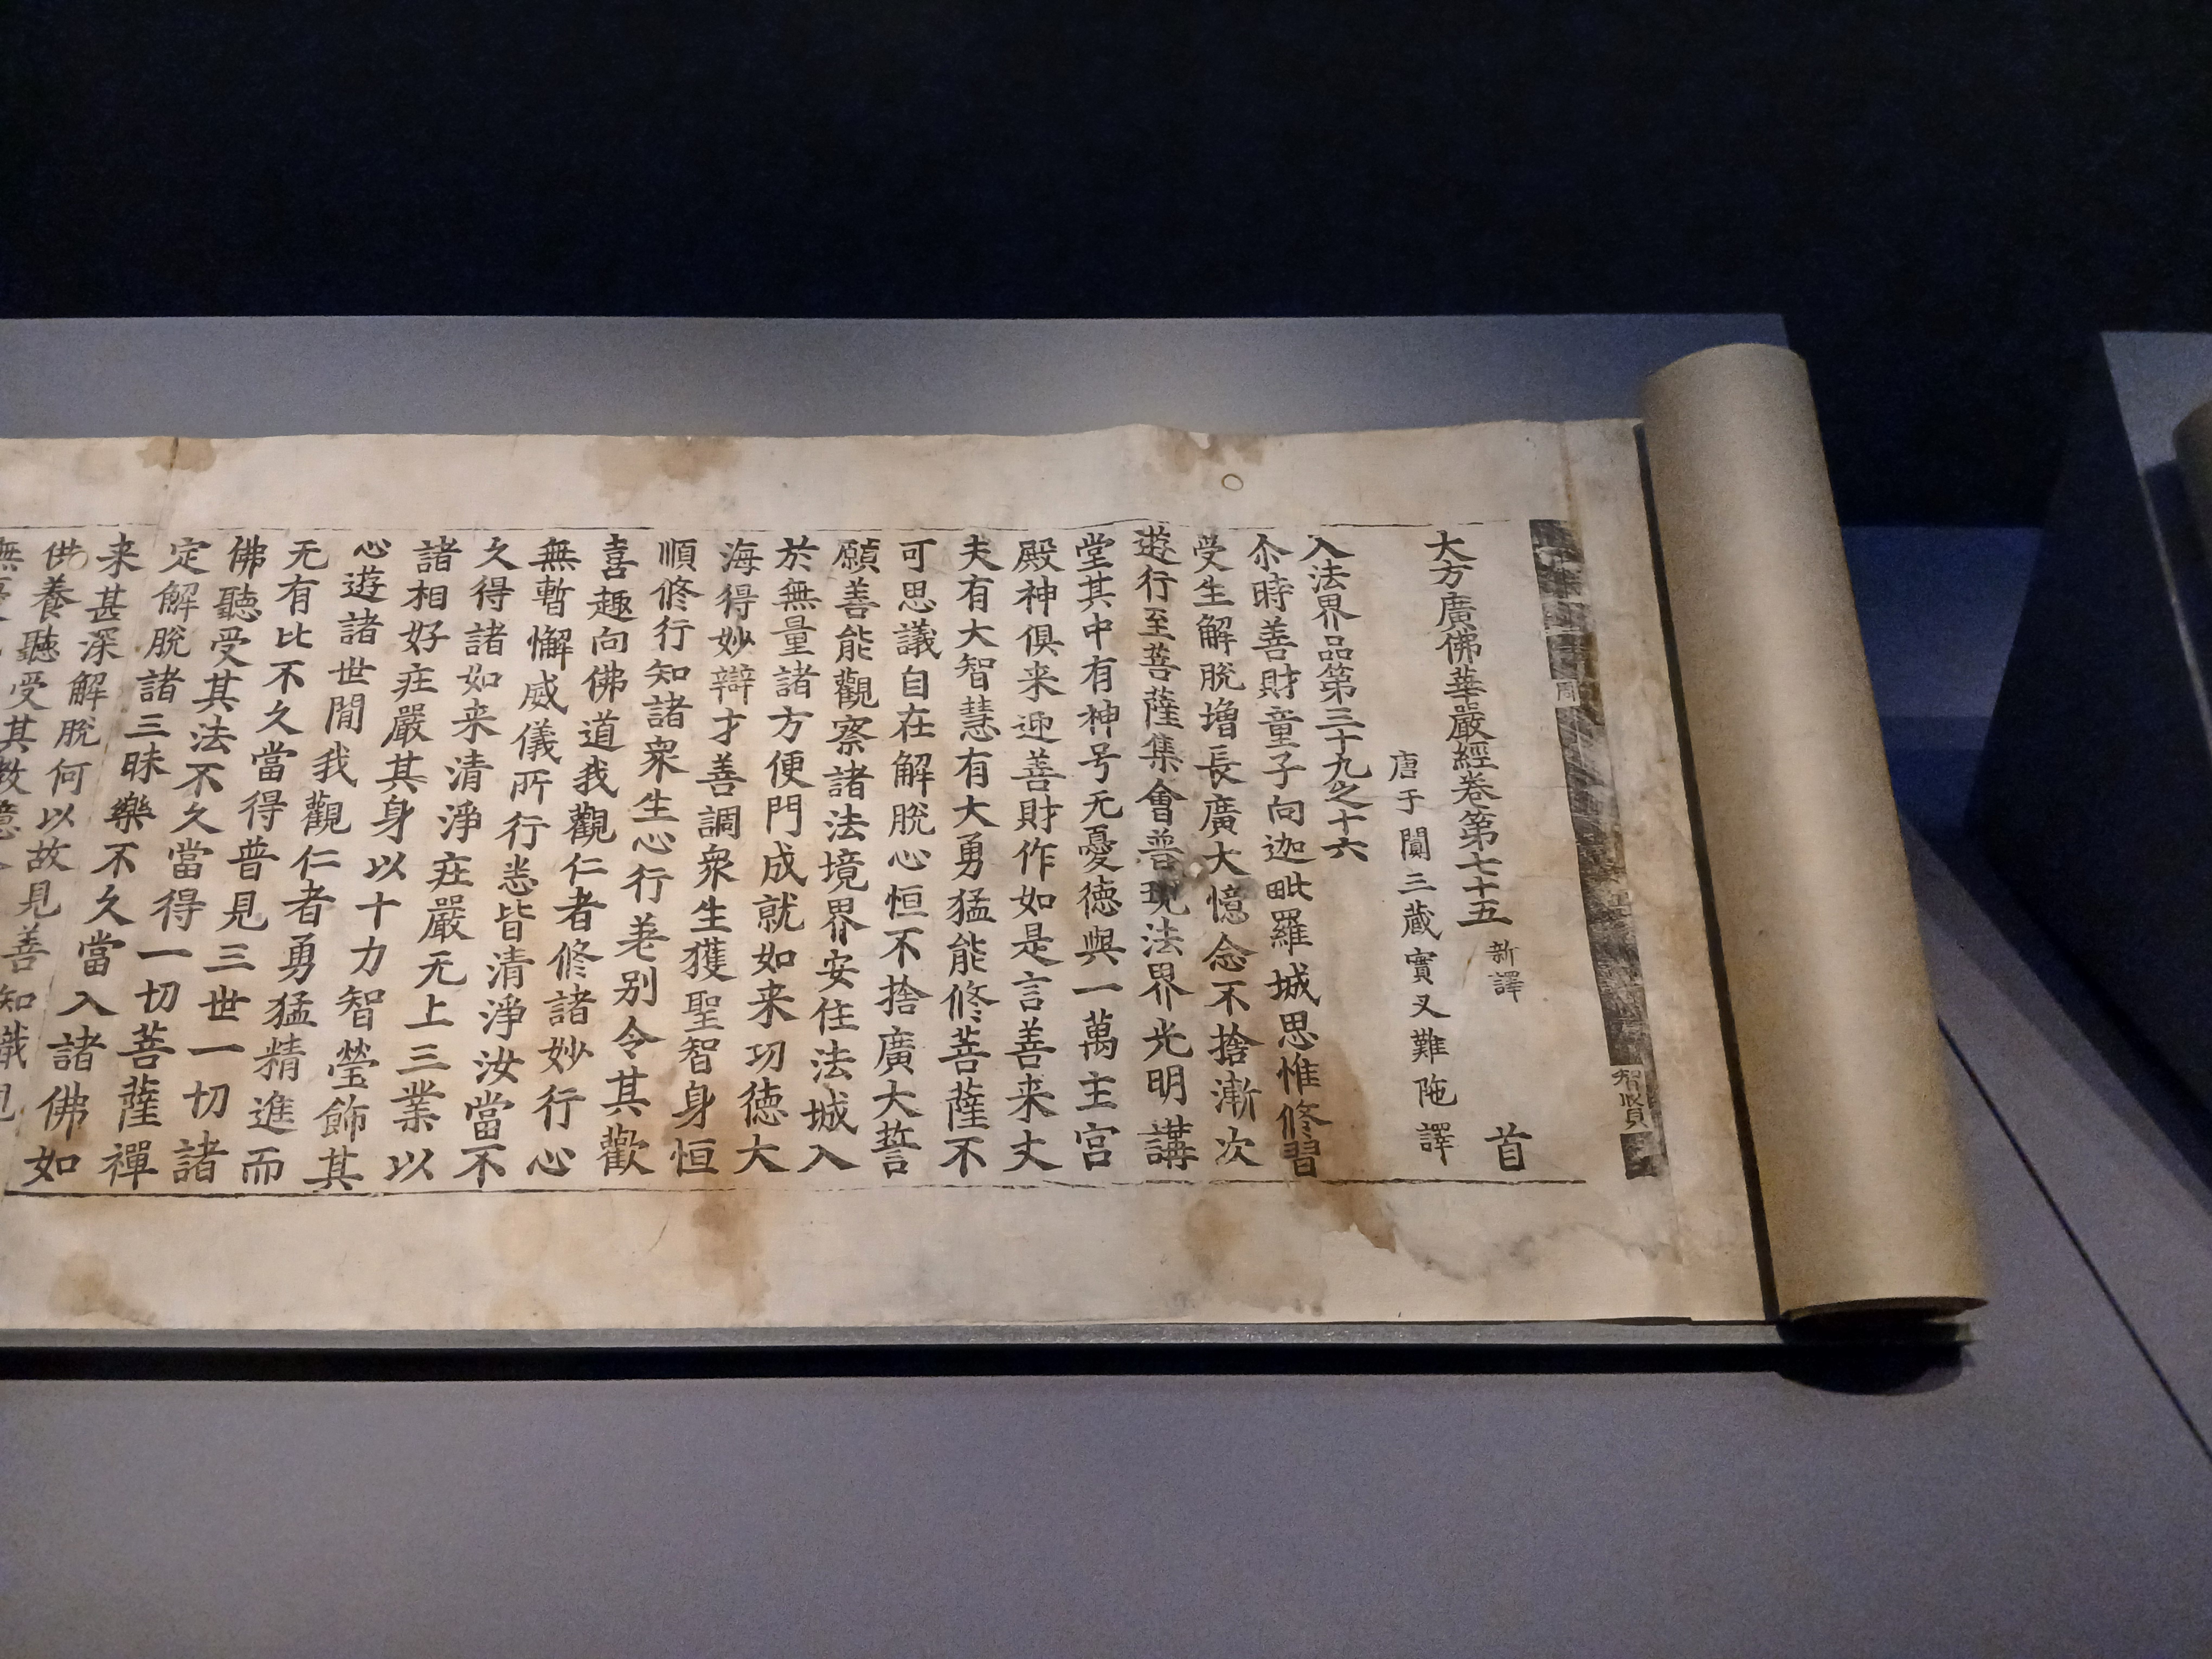 周
智賢
大方廣佛華嚴經卷第七十五 新譯 首
唐于闐三藏實叉難陁譯
入法界品第三十九之十六
尒時善財童子向迦毗羅城思惟修習
受生解脫增長廣大憶念不捨漸次
遊行至菩薩集會普現法界光明講
堂其中有神号无憂德與一萬主宮
殿神俱来迎善財作如是言善来丈
夫有大智慧有大勇猛能修菩薩不
可思議自在解脫心恒不捨廣大誓
願善能觀察諸法境界安住法城入
於無量諸方便門成就如来功德大
海得妙辯才善調衆生獲聖智身恒
順修行知諸衆生心行差别令其歡
喜趣向佛道我觀仁者修諸妙行心
無暫懈威儀所行悉皆清淨汝當不
久得諸如来清淨莊嚴无上三業以
諸相好莊嚴其身以十力智瑩飾其
心遊諸世閒我觀仁者勇猛精進而
无有比不久當得普見三世一切諸
佛聽受其法不久當得一切菩薩禪
定解脫諸三昧樂不久當入諸佛如
来甚深解脫何以故見善知識
供養聽受其教憶
無